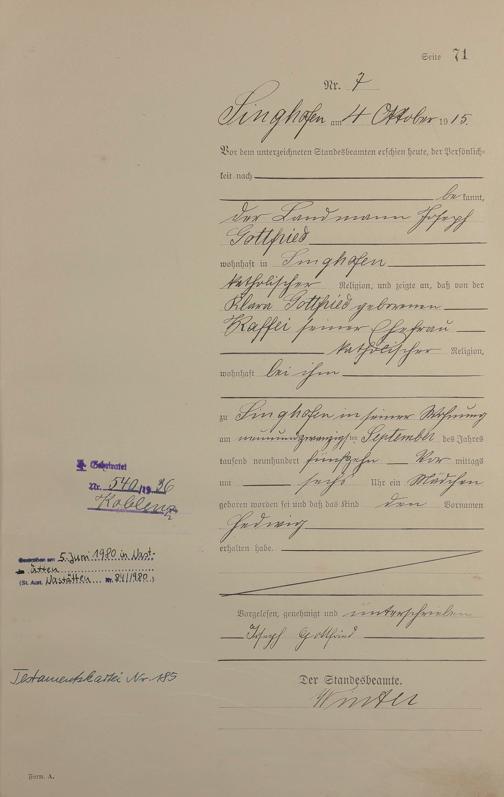 Seite 71
Nr. 7
Singhofen am 4 Oktober 1915.
Vor dem unterzeichneten Standesbeamten erschien heute, der Persönlich-
keit nach
be kannt,
der Landmann Joseph
Gottfried
wohnhaft in Singhofen
katholischer Religion, und zeigte an, daß von der
Klara Gottfried geborenen
Kaffei seiner Ehefrau
katholischer Religion,
wohnhaft bei ihm
zu Singhofen in seiner Wohnung
am neunundzwanzigsten September des Jahres
tausend neunhundert fünfzehn Vor mittags
um sechs Uhr ein Mädchen
geboren worden sei und daß das Kind den Vornamen
Hedwig
erhalten habe.
Vorgelesen, genehmigt und unterschrieben
Joseph Gottfried
Der Standesbeamte.
Winter
Geheiratet
Nr. 540/1936
Koblenz
Gestorben am 5. Juni 1980 in Nast-
ätten
(St. Amt. Nastätten Nr. 84/1980.)
Testamentskartei Nr. 185
Form. A.